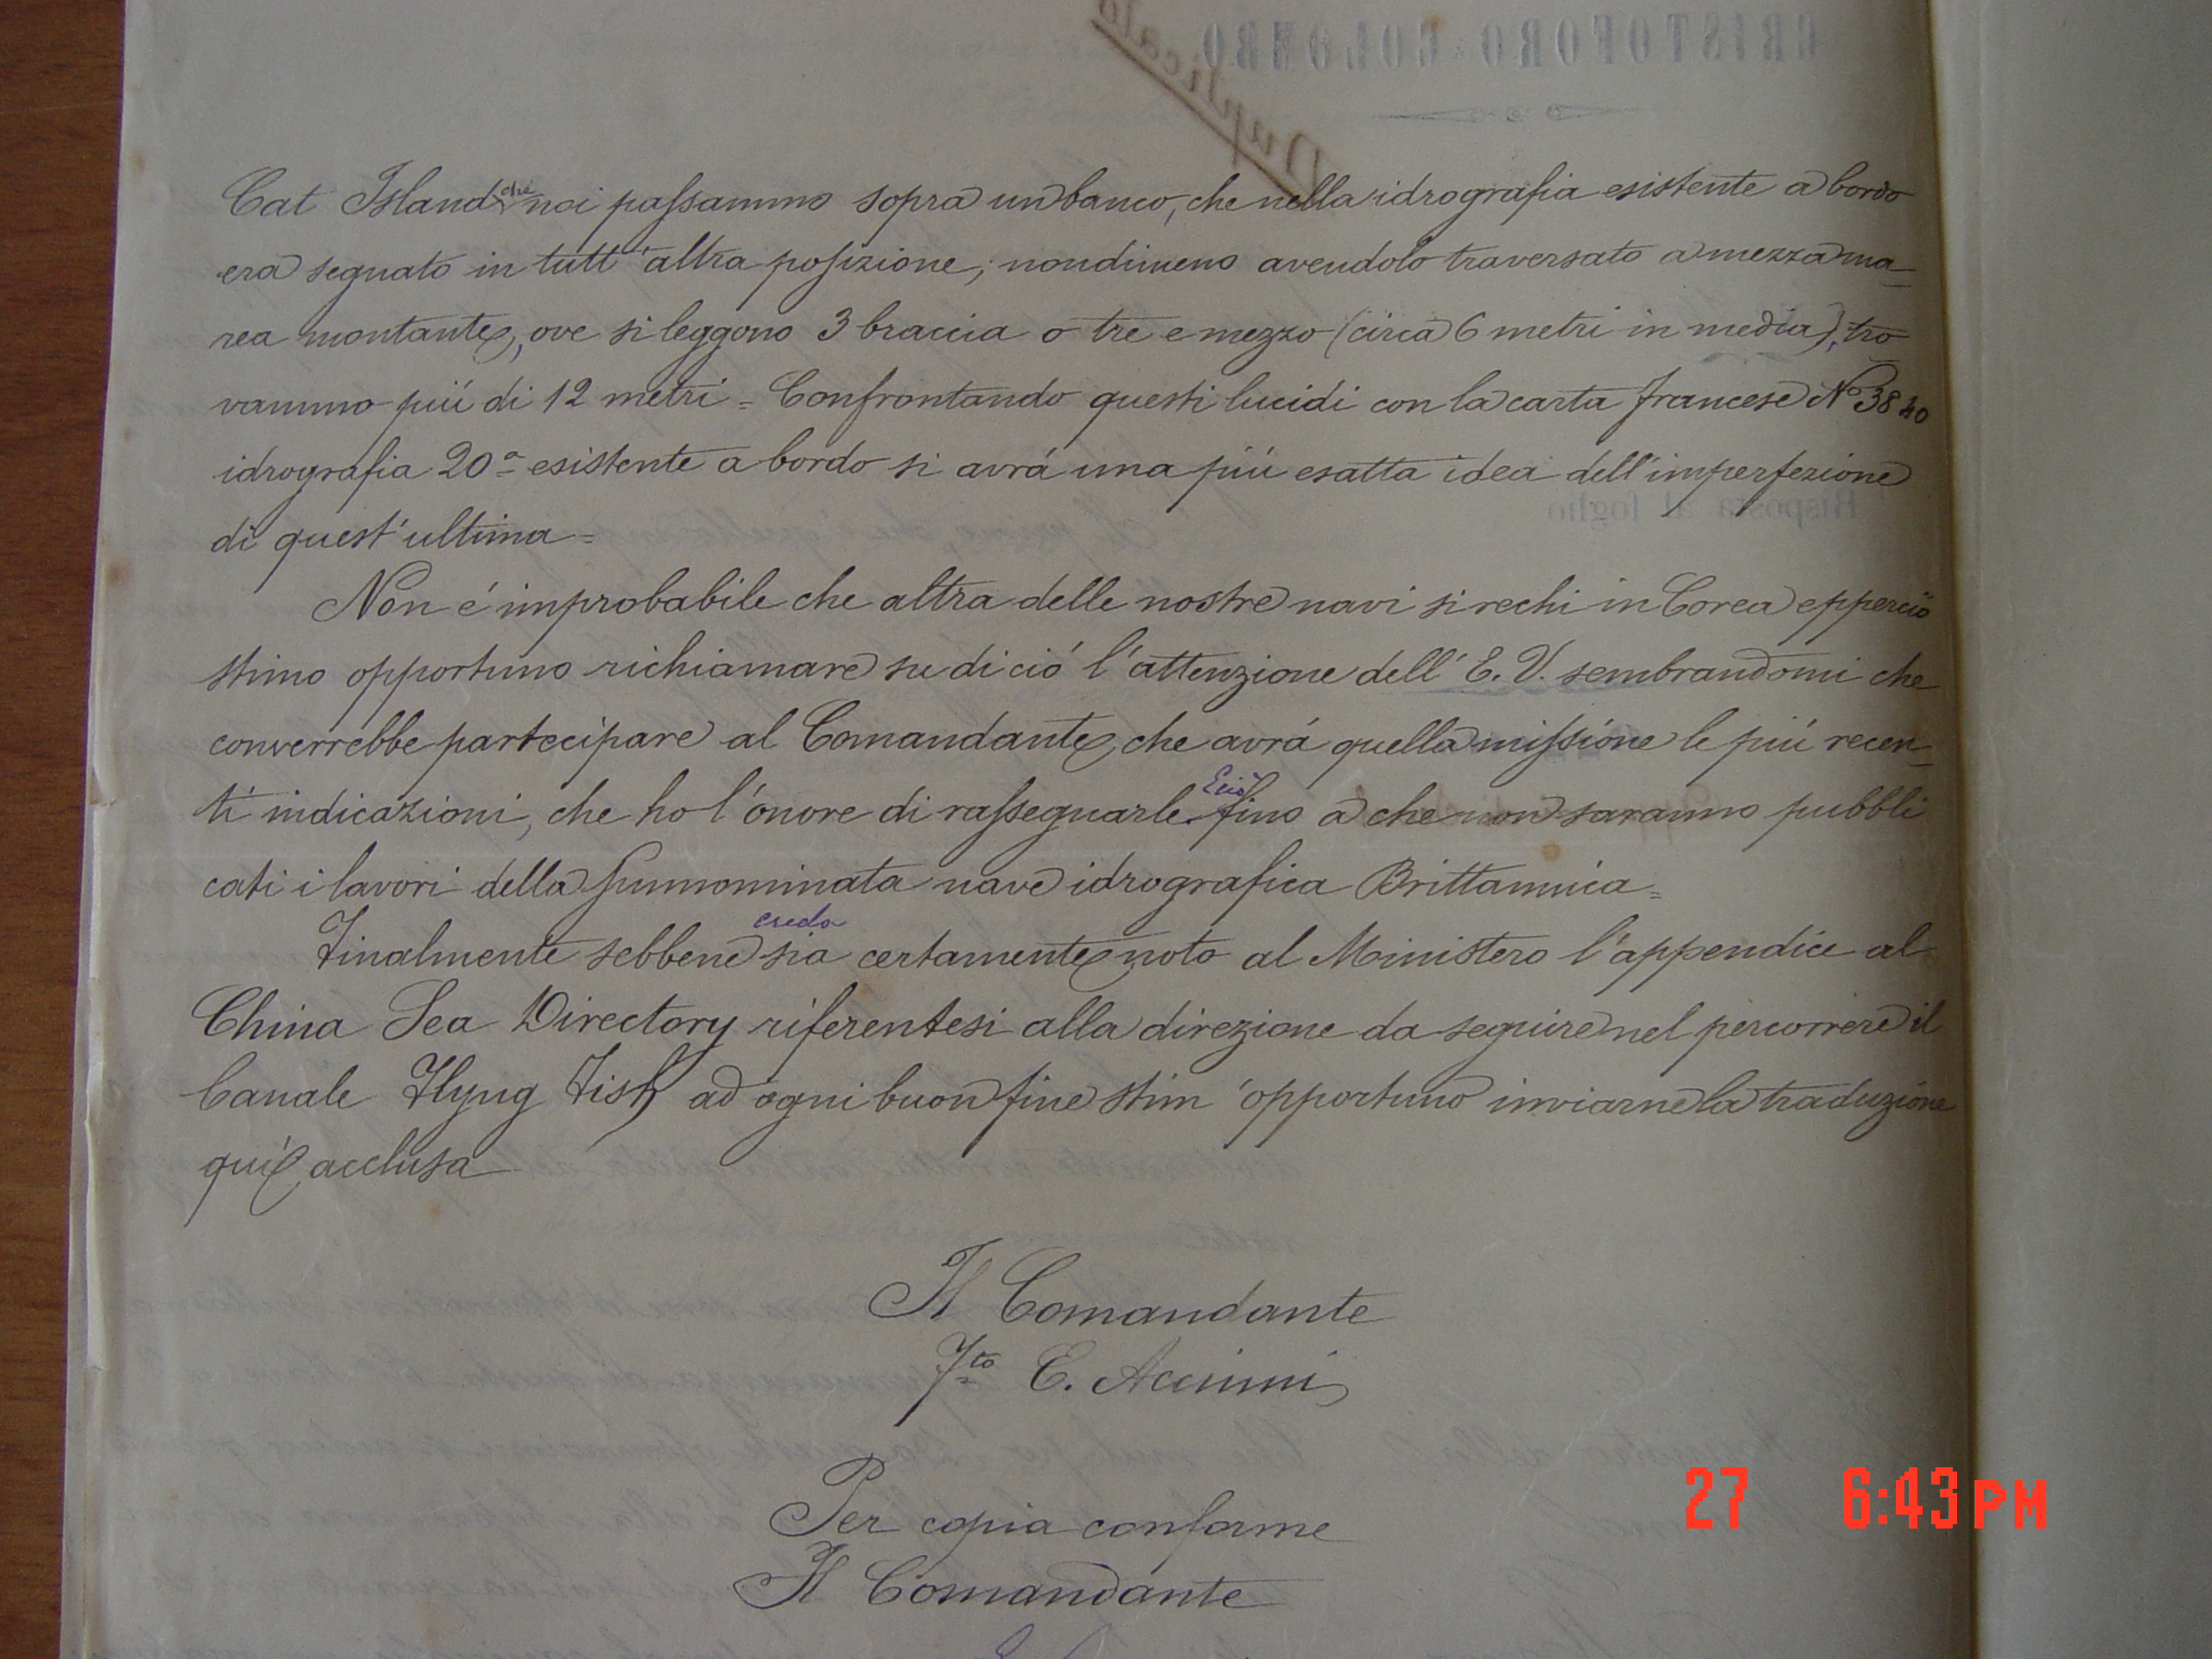 CRISTOFORO COLOMBO
Duplicato
Cat Island che noi passammo sopra un banco, che nella idrografia esistente a bordo
era segnato in tutt'altra posizione; nondimeno avendolo traversato a mezza ma-
rea montante, ove si leggono 3 braccia o tre e mezzo (circa 6 metri in media), tro
vammo più di 12 metri = Confrontando questi lucidi con la carta francese No 3840
idrografia 20a esistente a bordo si avrá una piú esatta idea dell'imperfezione
di quest'ultima =
Risposta al foglio
Non é improbabile che altra delle nostre navi si rechi in Corea epperció
stimo opportuno richiamare su di ció l'attenzione dell' E. V. sembrandomi che
converrebbe partecipare al Comandante, che avrá quella missione le piú recen-
ti indicazioni, che ho l'onore di rassegnarle. Eció fino a che non saranno pubbli
cati i lavori della sunnominata nave idrografica Brittannica =
Finalmente sebbene credo sia certamente noto al Ministero l'appendice al
China Sea Directory riferentesi alla direzione da seguire nel percorrere il
Canale Flyng Fish ad ogni buon fine stim'opportuno inviarne la traduzione
quì acclusa
Il Comandante
Fto E. Accinni
Per copia conforme
Il Comandante
27 6:43 PM